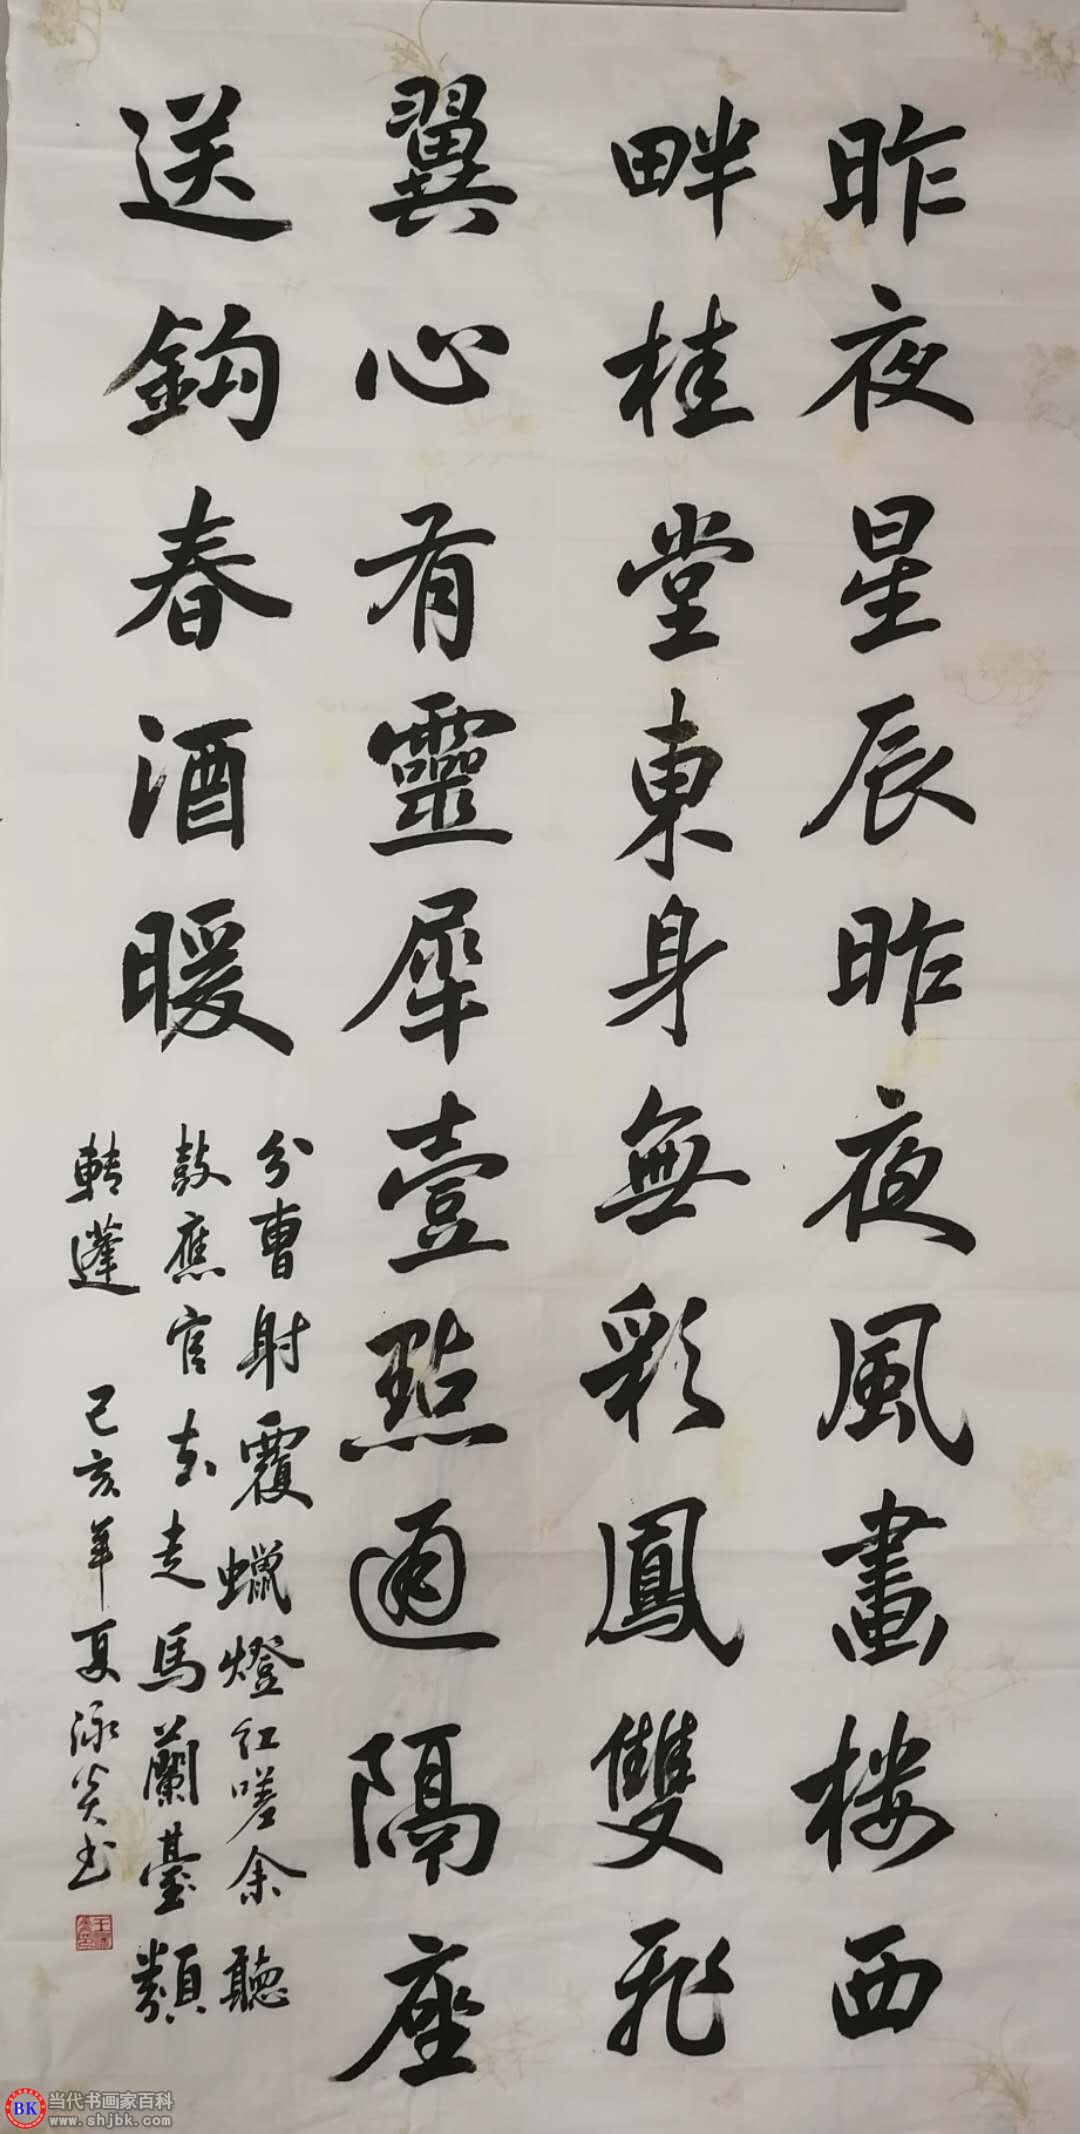 昨夜星辰昨夜風畫楼西
畔桂堂東身無彩鳳雙飛
翼心有靈犀壹點通隔座
送鈎春酒暖
分曹射覆蠟燈红嗟余聽
鼓應官去走馬蘭臺類
轉蓬 己亥年夏泳炎书
BK 当代书画家百科
www.shjbk.com